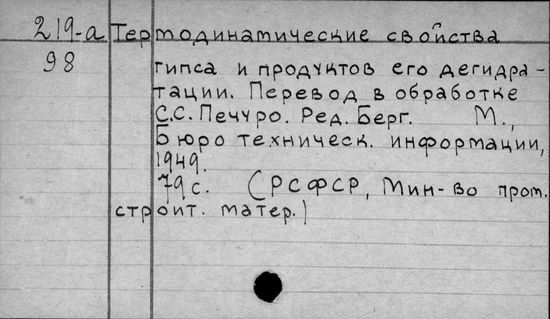 219-а Термодинамические свойства
98 гипса и продуктов его дегидра-
тации. Перевод в обработке
С.С. Печуро. Ред. Берг. М.,
Бюро техническ. информации,
1949.
79 с. (РСФСР, Мин-во пром.
строит. матер.)